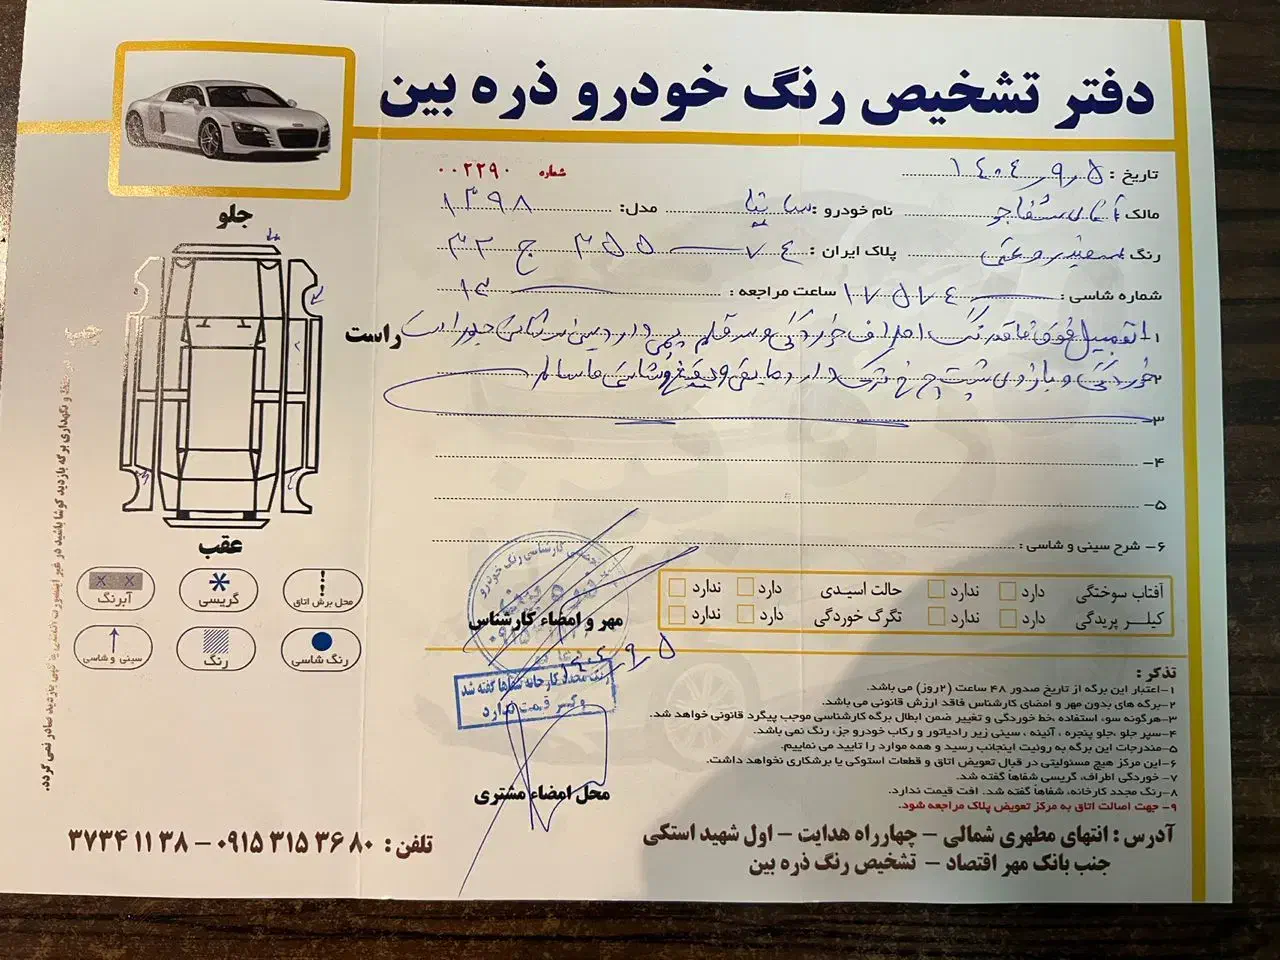 دفتر تشخیص رنگ خودرو ذره بین
تاریخ : ۱۴۰۴/۹/۵
شماره ۰۰۲۲۹۰
مالک : آقای شفاجو نام خودرو : ساپیا مدل : ۱۳۹۸
رنگ سفید روغنی پلاک ایران : ۷۴ ۳۵۵ ج ۳۲
شماره شاسی : ۱۷۵۷۴ ساعت مراجعه : ۱۳
۱- اتومبیل فوق فاقد رنگ اطراف خوردگی و
۲- خوردگی و پشت چرخ ترک دارد مابقی و شاسی ها سالم
۳-
۴-
۵-
۶- شرح سینی و شاسی :
جلو
راست
چپ
عقب
محل برش اتاق
گریسی
آبرنگ
رنگ شاسی
رنگ
سینی و شاسی
آفتاب سوختگی دارد ندارد حالت اسیدی دارد ندارد
کیلـر پریدگی دارد ندارد تگرگ خوردگی دارد ندارد
مهر و امضاء کارشناس
۱۴۰۴/۹/۵
رنگ مجدد کارخانه شفاها گفته شد
و کسر قیمت ندارد
محل امضاء مشتری
تذکر :
۱-اعتبار این برگه از تاریخ صدور ۴۸ ساعت (۲روز) می باشد.
۲-برگه های بدون مهر و امضای کارشناس فاقد ارزش قانونی می باشد.
۳-هرگونه سوء استفاده ،خط خوردگی و تغییر ضمن ابطال برگه کارشناسی موجب پیگرد قانونی خواهد شد.
۴-سپر جلو ،جلو پنجره ، آئینه ، سینی زیر رادیاتور و رکاب خودرو جزء رنگ نمی باشد.
۵-مندرجات این برگه به رونیت اینجانب رسید و همه موارد را تایید می نماییم.
۶-این مرکز هیچ مسئولیتی در قبال تعویض اتاق و قطعات استوکی یا برشکاری نخواهد داشت.
۷- خوردگی اطراف، گریسی شفاهاً گفته شد.
۸-رنگ مجدد کارخانه، شفاهاً گفته شد. افت قیمت ندارد.
۹- جهت اصالت اتاق به مرکز تعویض پلاک مراجعه شود.
آدرس : انتهای مطهری شمالی – چهارراه هدایت – اول شهید استکی
جنب بانک مهر اقتصاد – تشخیص رنگ ذره بین
تلفن : ۰۹۱۵۳۱۵۳۶۸۰ – ۳۷۳۴۱۱۳۸